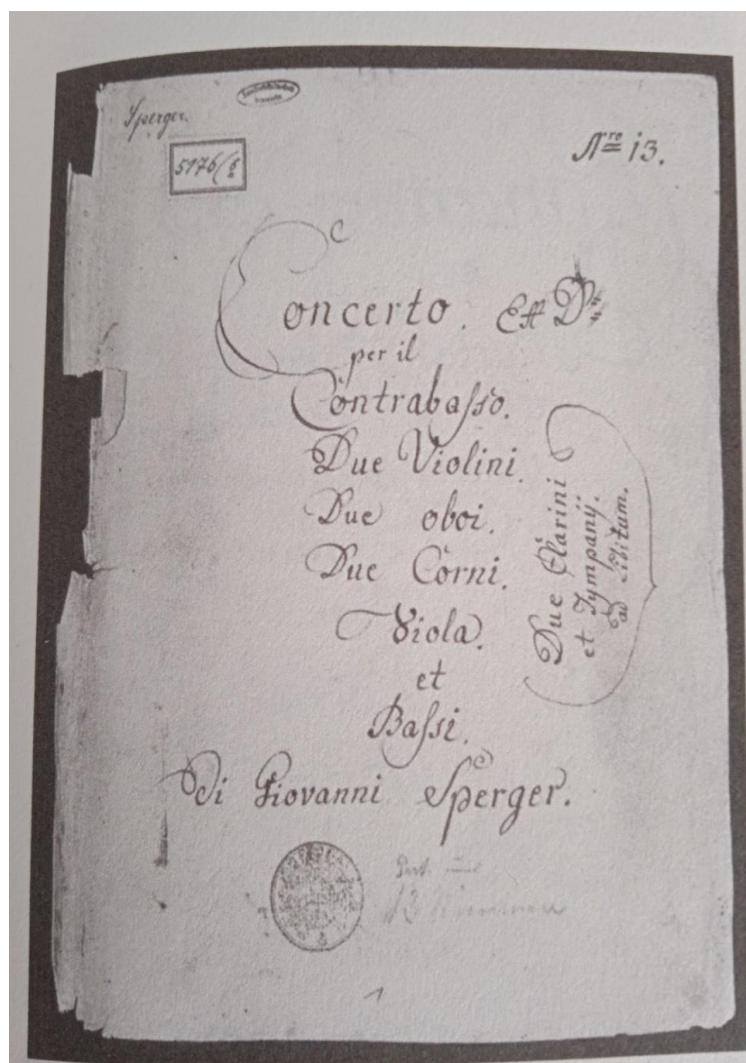 Sperger.
5176/8
Nro 13.
Concerto. Ex D#
per il
Contrabaſso.
Due Violini.
Due oboi.
Due Corni.
Viola.
et
Baſsi.
Due Clarini
et Tympanÿ.
ad Libitum.
Di Giovanni Sperger.
Part. und
13 Stimmen
1